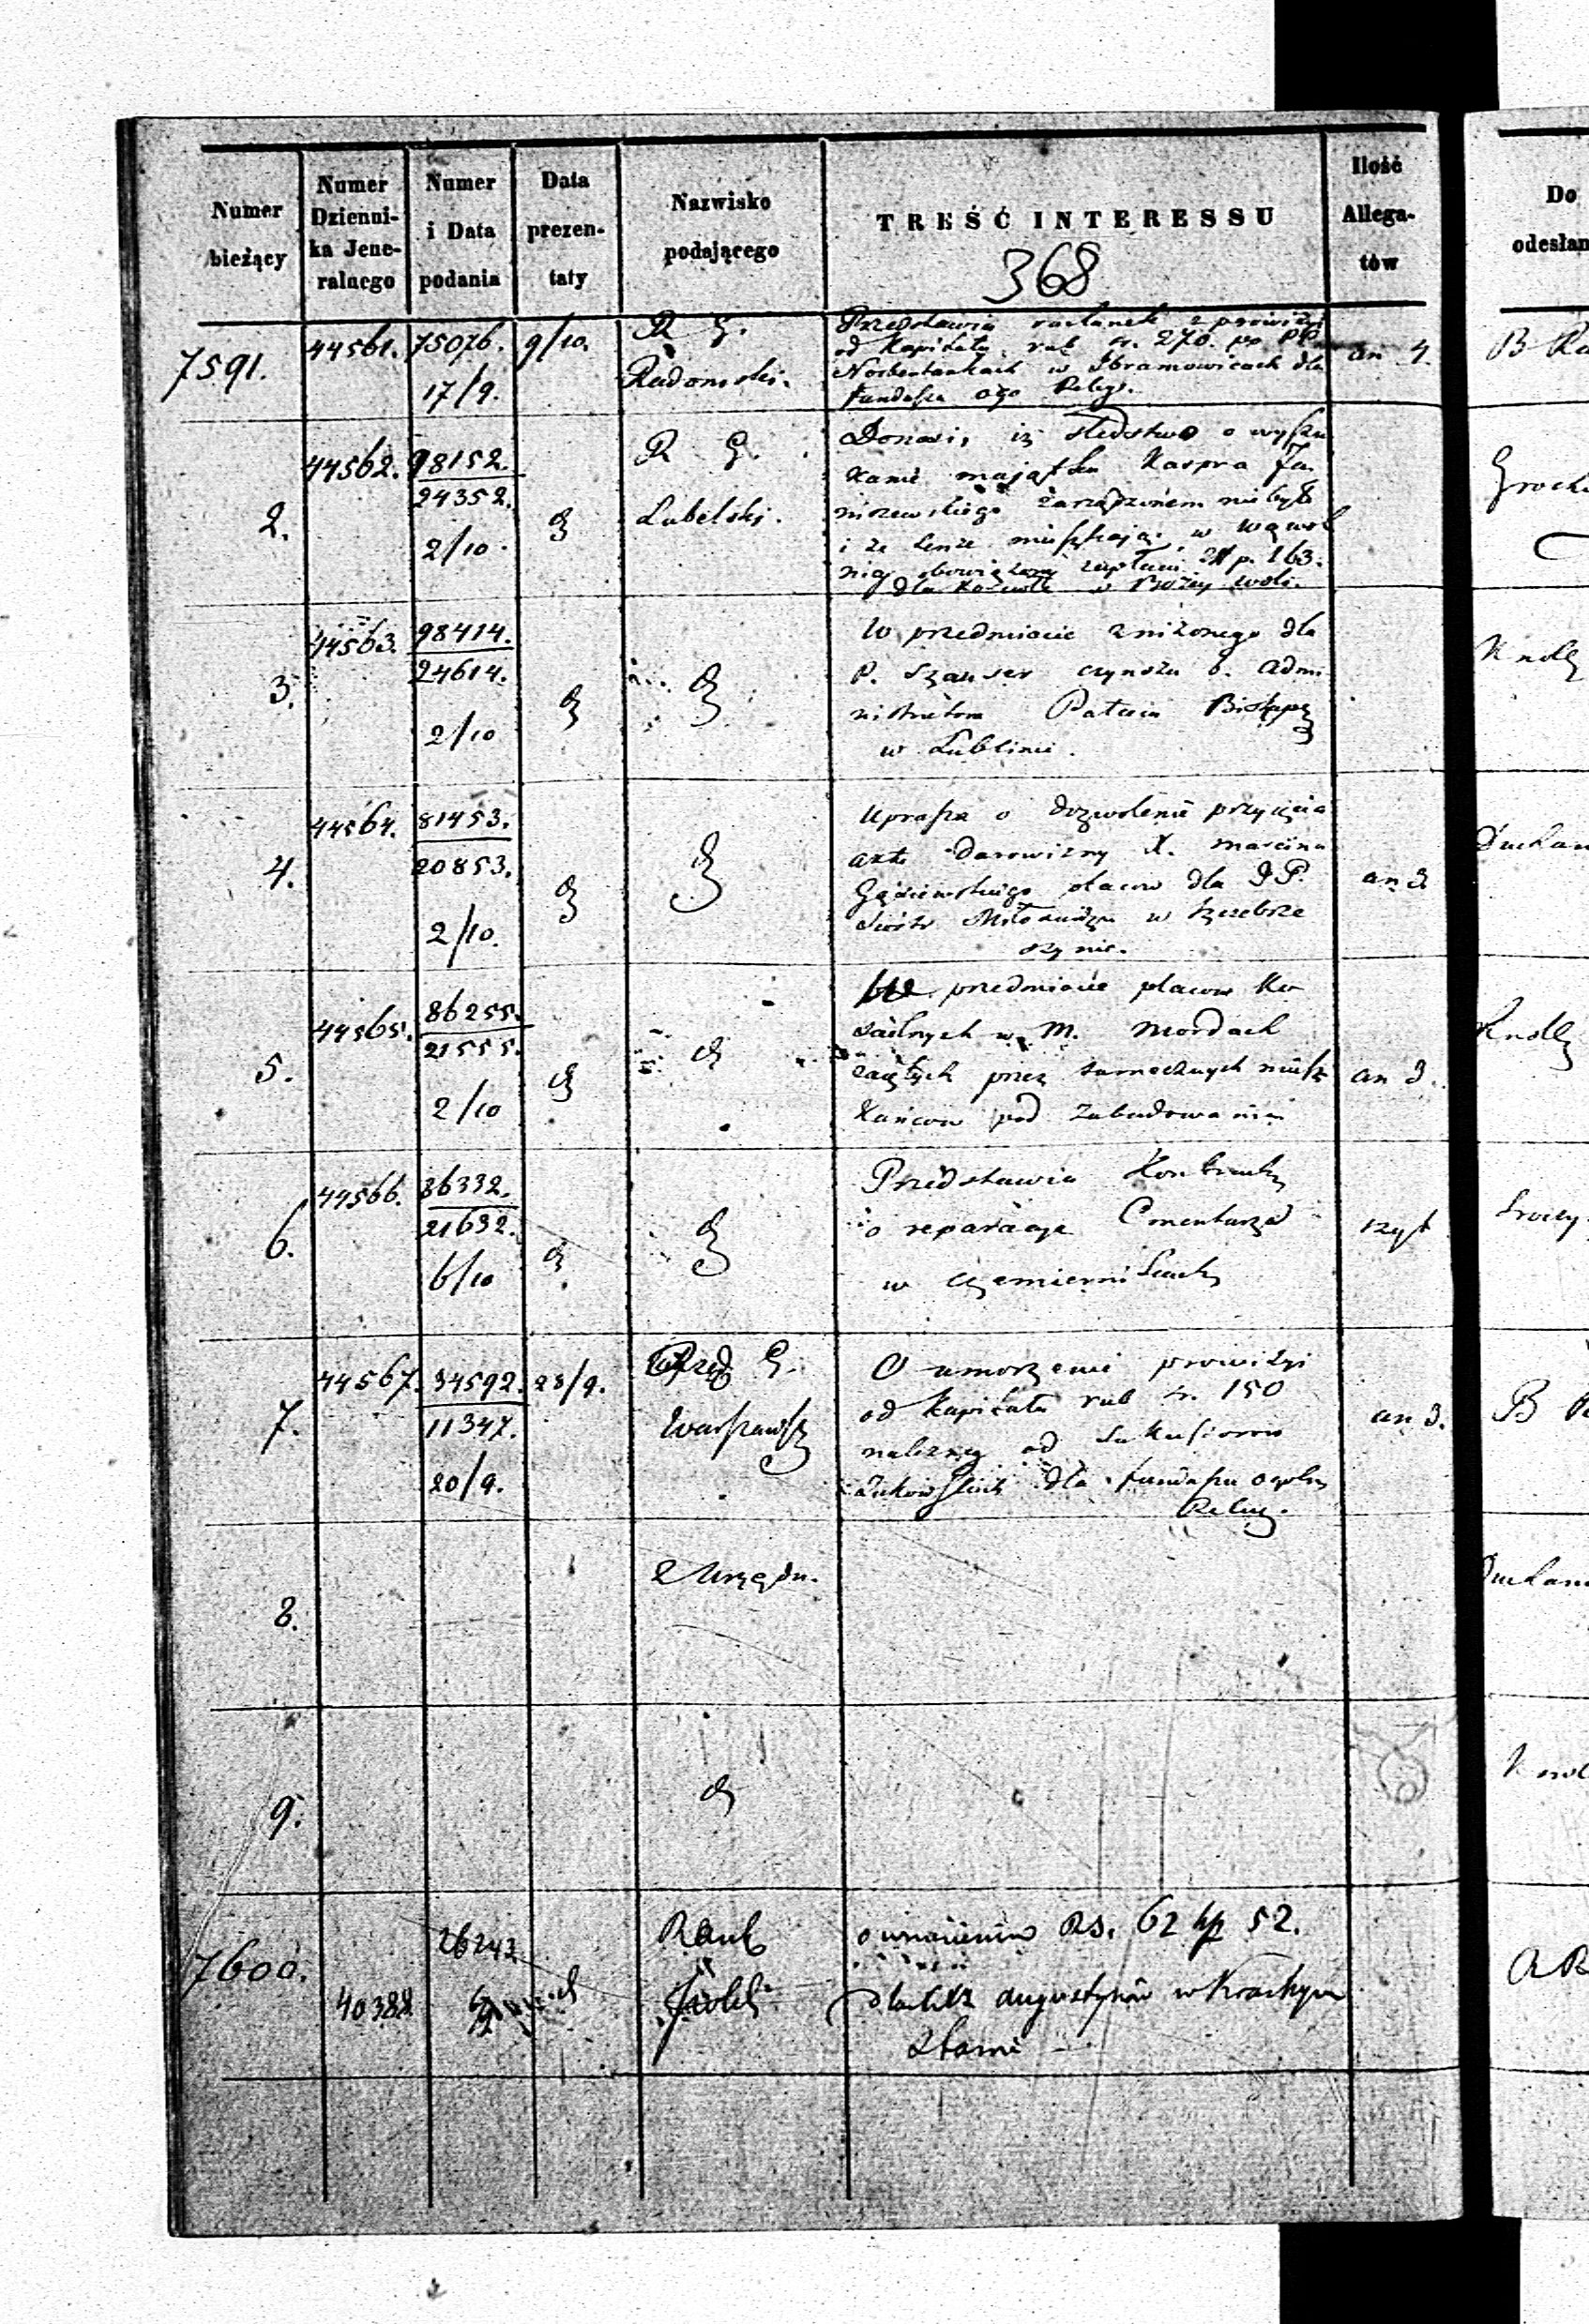 Numer bieżący
Numer Dzienni- ka Jene- ralnego
Numer i Data podania
Data prezen- taty
Nazwisko podającego
TREŚĆ INTERESSU
Ilość Allega- tów
Do odesłan
368
7591. 44561. 75076. 17/9. 9/10. R G. Radomski.
Przedstawia z prowizyi
od Kapitału rub sr. 270. po PP.
Norbertankach w Ibramowicach dla
Fundusza ogo Relig.
an 4.
2. 44562. 98152. 24352. 2/10. R G. Lubelski.
Donosi, iż śledztwo o wyszu
kanie majątku Kaspra Ja
niszewskiego zarządzonem nie było
i że tenże mieszkając w
obowiązany zapłacić Zł p. 163.
dla Kościoła w Bożey woli.
3. 44563. 98414. 24614. 2/10
W przedmiocie zniżonego dla
P. Szauser czynszu b. Admi
nistratora Pałacu Biskupg
w Lublinie.
4. 44564. 81453. 20853. 2/10.
Uprasza o dozwolenie przyjęcia
aktu darowizny X. Marcina
placow dla PP.
Siostr Miłosierdzia w Szczebrze
szynie.
an 3
5. 44565. 86255. 21555. 2/10
We przedmiocie placow Ko
ścielnych w M. Mordach
zajętych przez tamecznych miesz
kańcow pod zabudowania
an 3.
6. 44566. 86332. 21632. 6/10
Przedstawia Kontrakt
o reparacye Cmentarza
w Czemiernikach
szyt
7. 44567. 34592. 11347. 20/9. 28/9. Rząd G. Warszawsk
O umorzenie prowizyi
od Kapitału rub sr. 150
należney od Sukcesorow
Żukowskich dla funduszu ogoln
Relig.
an 3.
8. Z Urzędu.
9.
7600. 40388 26243 Bank Polsk
o wniesieniu RS. 62 kp 52.
Augustynów w Krasnym
stawie